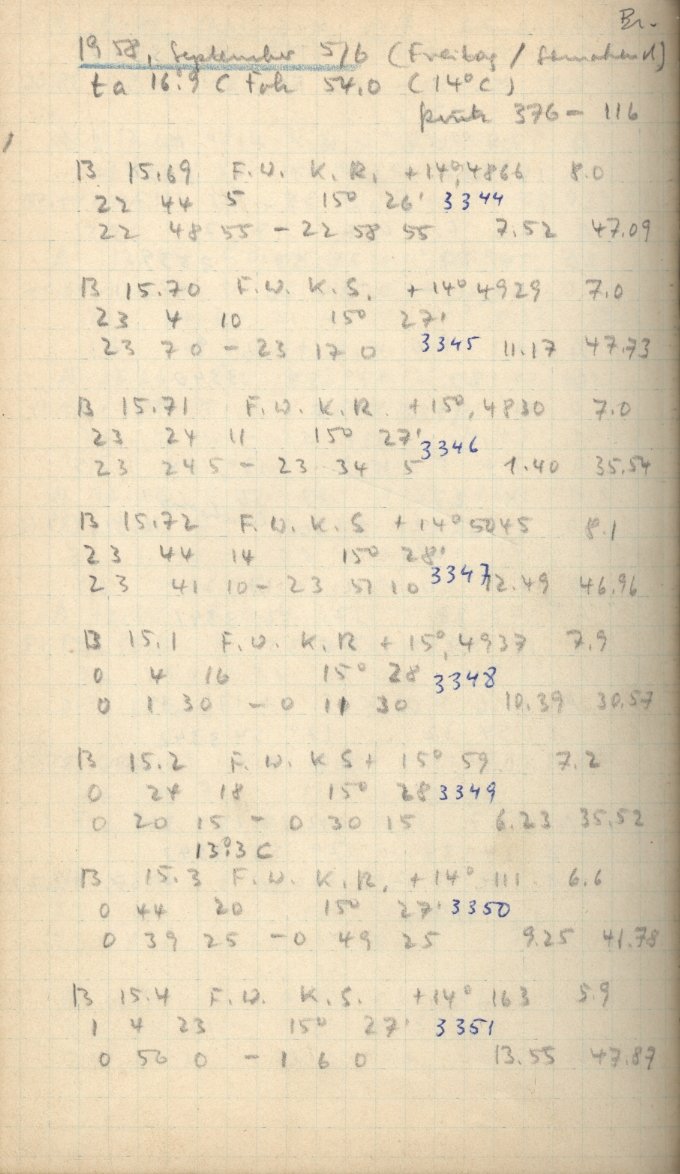 Br.
1958, September 5/6 (Freitag / Sonnabend)
ta 16°.9 C Fok 54,0 (14°C)
376 - 116
B 15.69 F.W. K.R. +14°,4866 8.0
22 44 5 15° 26' 3344
22 48 55 - 22 58 55 7.52 47.09
B 15.70 F.W. K.S. +14° 4929 7.0
23 4 10 15° 27'
23 7 0 - 23 17 0 3345 11.17 47.73
B 15.71 F.W. K.R +15°, 4830 7.0
23 24 11 15° 27' 3346
23 24 5 - 23 34 5 1.40 35.54
B 15.72 F.W. K.S +14° 5045 8.1
23 44 14 15° 28'
23 41 10 - 23 51 10 3347 12.49 46.96
B 15.1 F.W. K.R + 15°, 4937 7.9
0 4 16 15° 28 3348
0 1 30 - 0 11 30 10.39 30.57
B 15.2 F.W. K S + 15° 59 7.2
0 24 18 15° 28 3349
0 20 15 - 0 30 15 6.23 35.52
13°.3 C
B 15.3 F.W. K.R. +14° 111 6.6
0 44 20 15° 27' 3350
0 39 25 - 0 49 25 9.25 41.78
B 15.4 F.W. K.S. +14° 163 5.9
1 4 23 15° 27' 3351
0 56 0 - 1 6 0 13.55 47.87